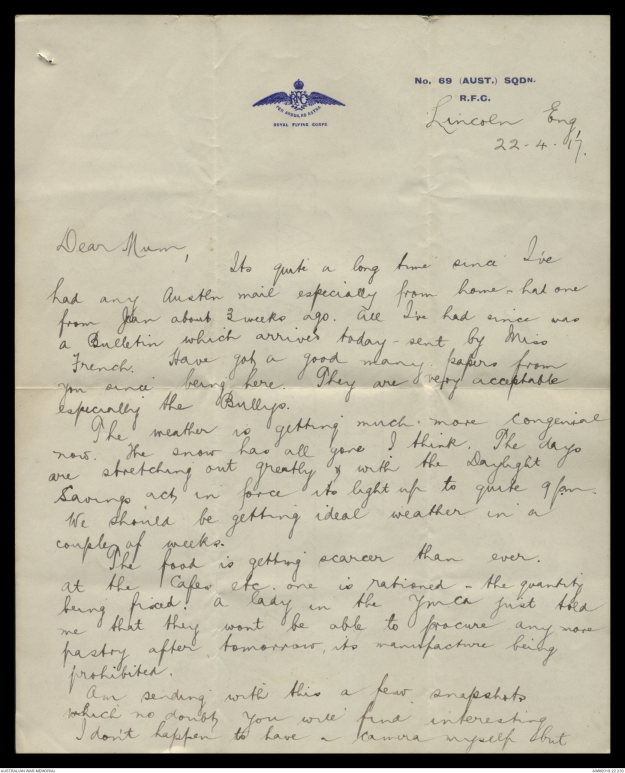 No. 69 (AUST.) SQDN.
R.F.C.
RFC
PER ARDUA AD ASTRA
ROYAL FLYING CORPS
Lincoln Eng,
22-4-17.
Dear Mum,
Its quite a long time since I've
had any Austln mail especially from home - had one
from Jean about 3 weeks ago. All I've had since was
a Bulletin which arrived today - sent by Miss
French. Have got a good many papers from
you since being here. They are very acceptable
especially the Bullys.
The weather is getting much more congenial
now. The snow has all gone I think. The days
are stretching out greatly & with the Daylight
Savings act in force its light up to quite 9 pm.
We should be getting ideal weather in a
couple of weeks.
The food is getting scarcer than ever.
At the Cafes etc. one is rationed - the quantity
being fixed. A lady in the Ymca just told
me that they wont be able to procure any more
pastry after tomorrow, its manufacture being
prohibited.
Am sending with this a few snapshots
which no doubt you will find interesting
I don't happen to have a camera myself but
AUSTRALIAN WAR MEMORIAL